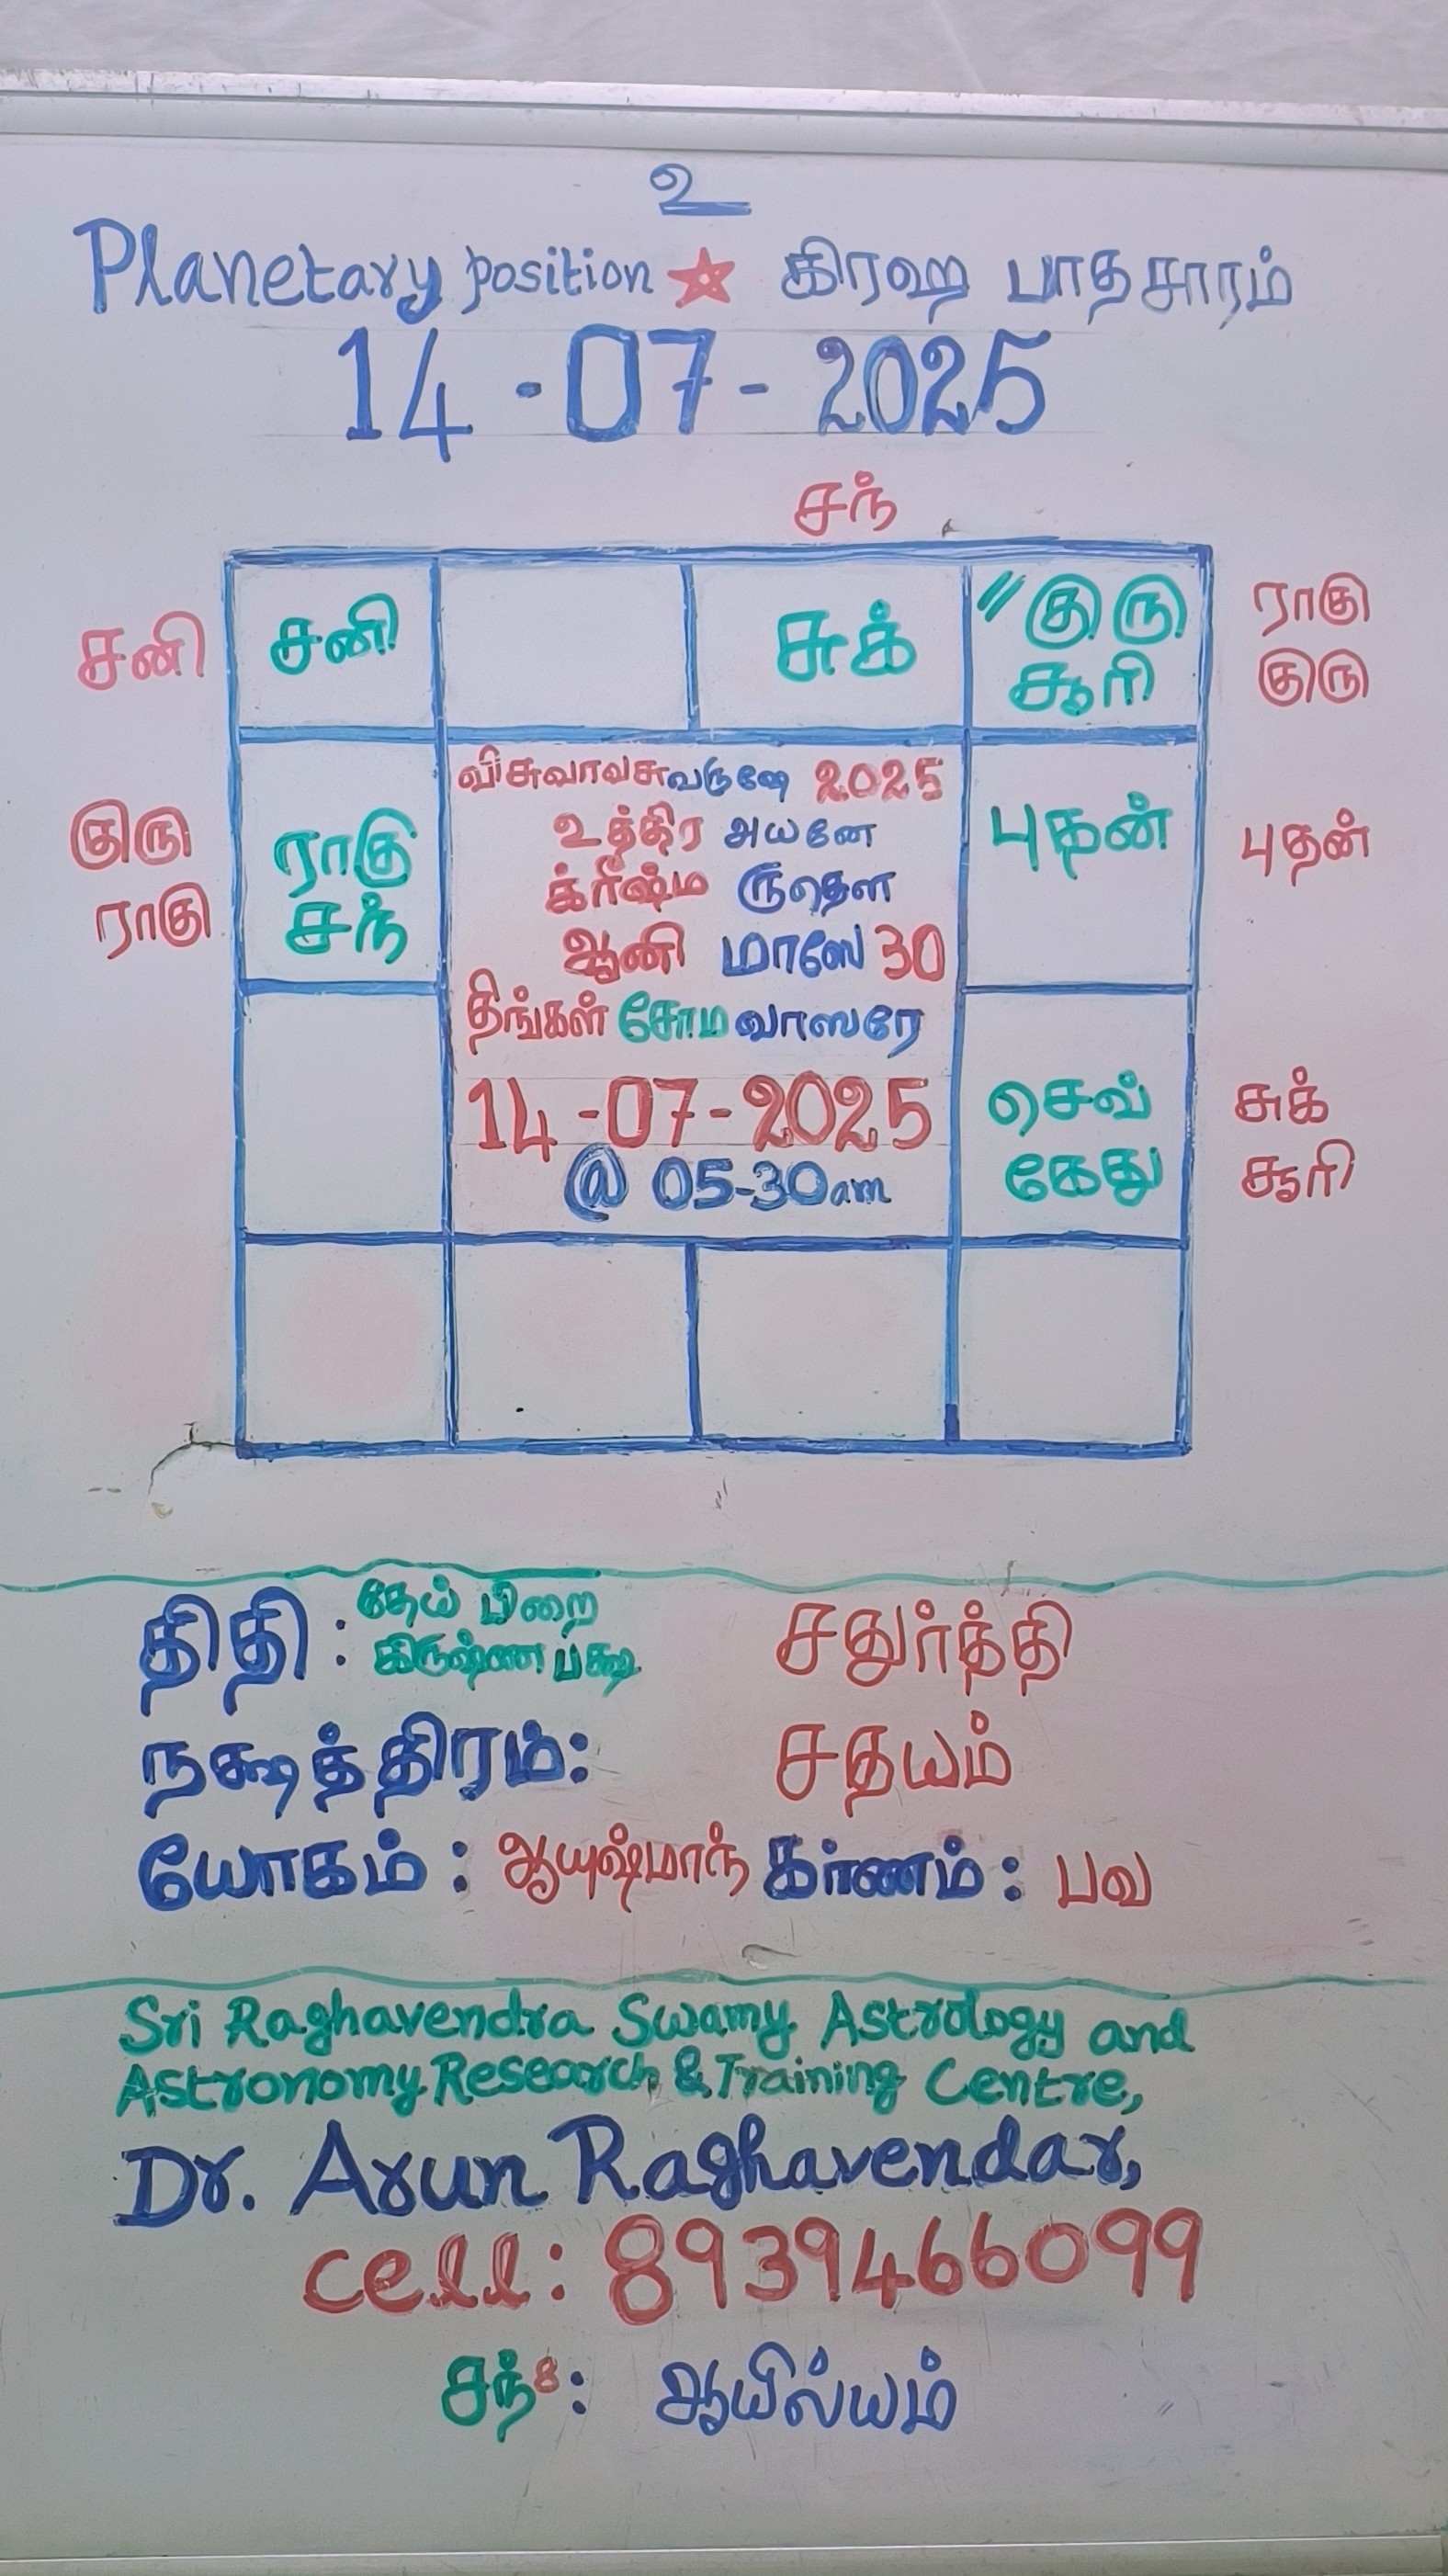 உ
Planetary position ☆ கிரஹ பாதசாரம்
14-07-2025
சந்
சனி சனி சுக் "குரு ராகு
சூரி குரு
விசுவாவசுவருஷே 2025
குரு ராகு உத்திர அயனே புதன் புதன்
ராகு சந் க்ரீஷ்ம ருதௌ
ஆனி மாஸே 30
திங்கள் சோம வாஸரே
14-07-2025 செவ் சுக்
@ 05-30am கேது சூரி
திதி: தேய் பிறை சதுர்த்தி
கிருஷ்ண பக்ஷ
நக்ஷத்திரம்: சதயம்
யோகம்: ஆயுஷ்மாந் கர்ணம்: பவ
Sri Raghavendra Swamy Astrology and
Astronomy Research & Training Centre,
Dr. Arun Raghavendar,
cell: 8939466099
சந்8: ஆயில்யம்